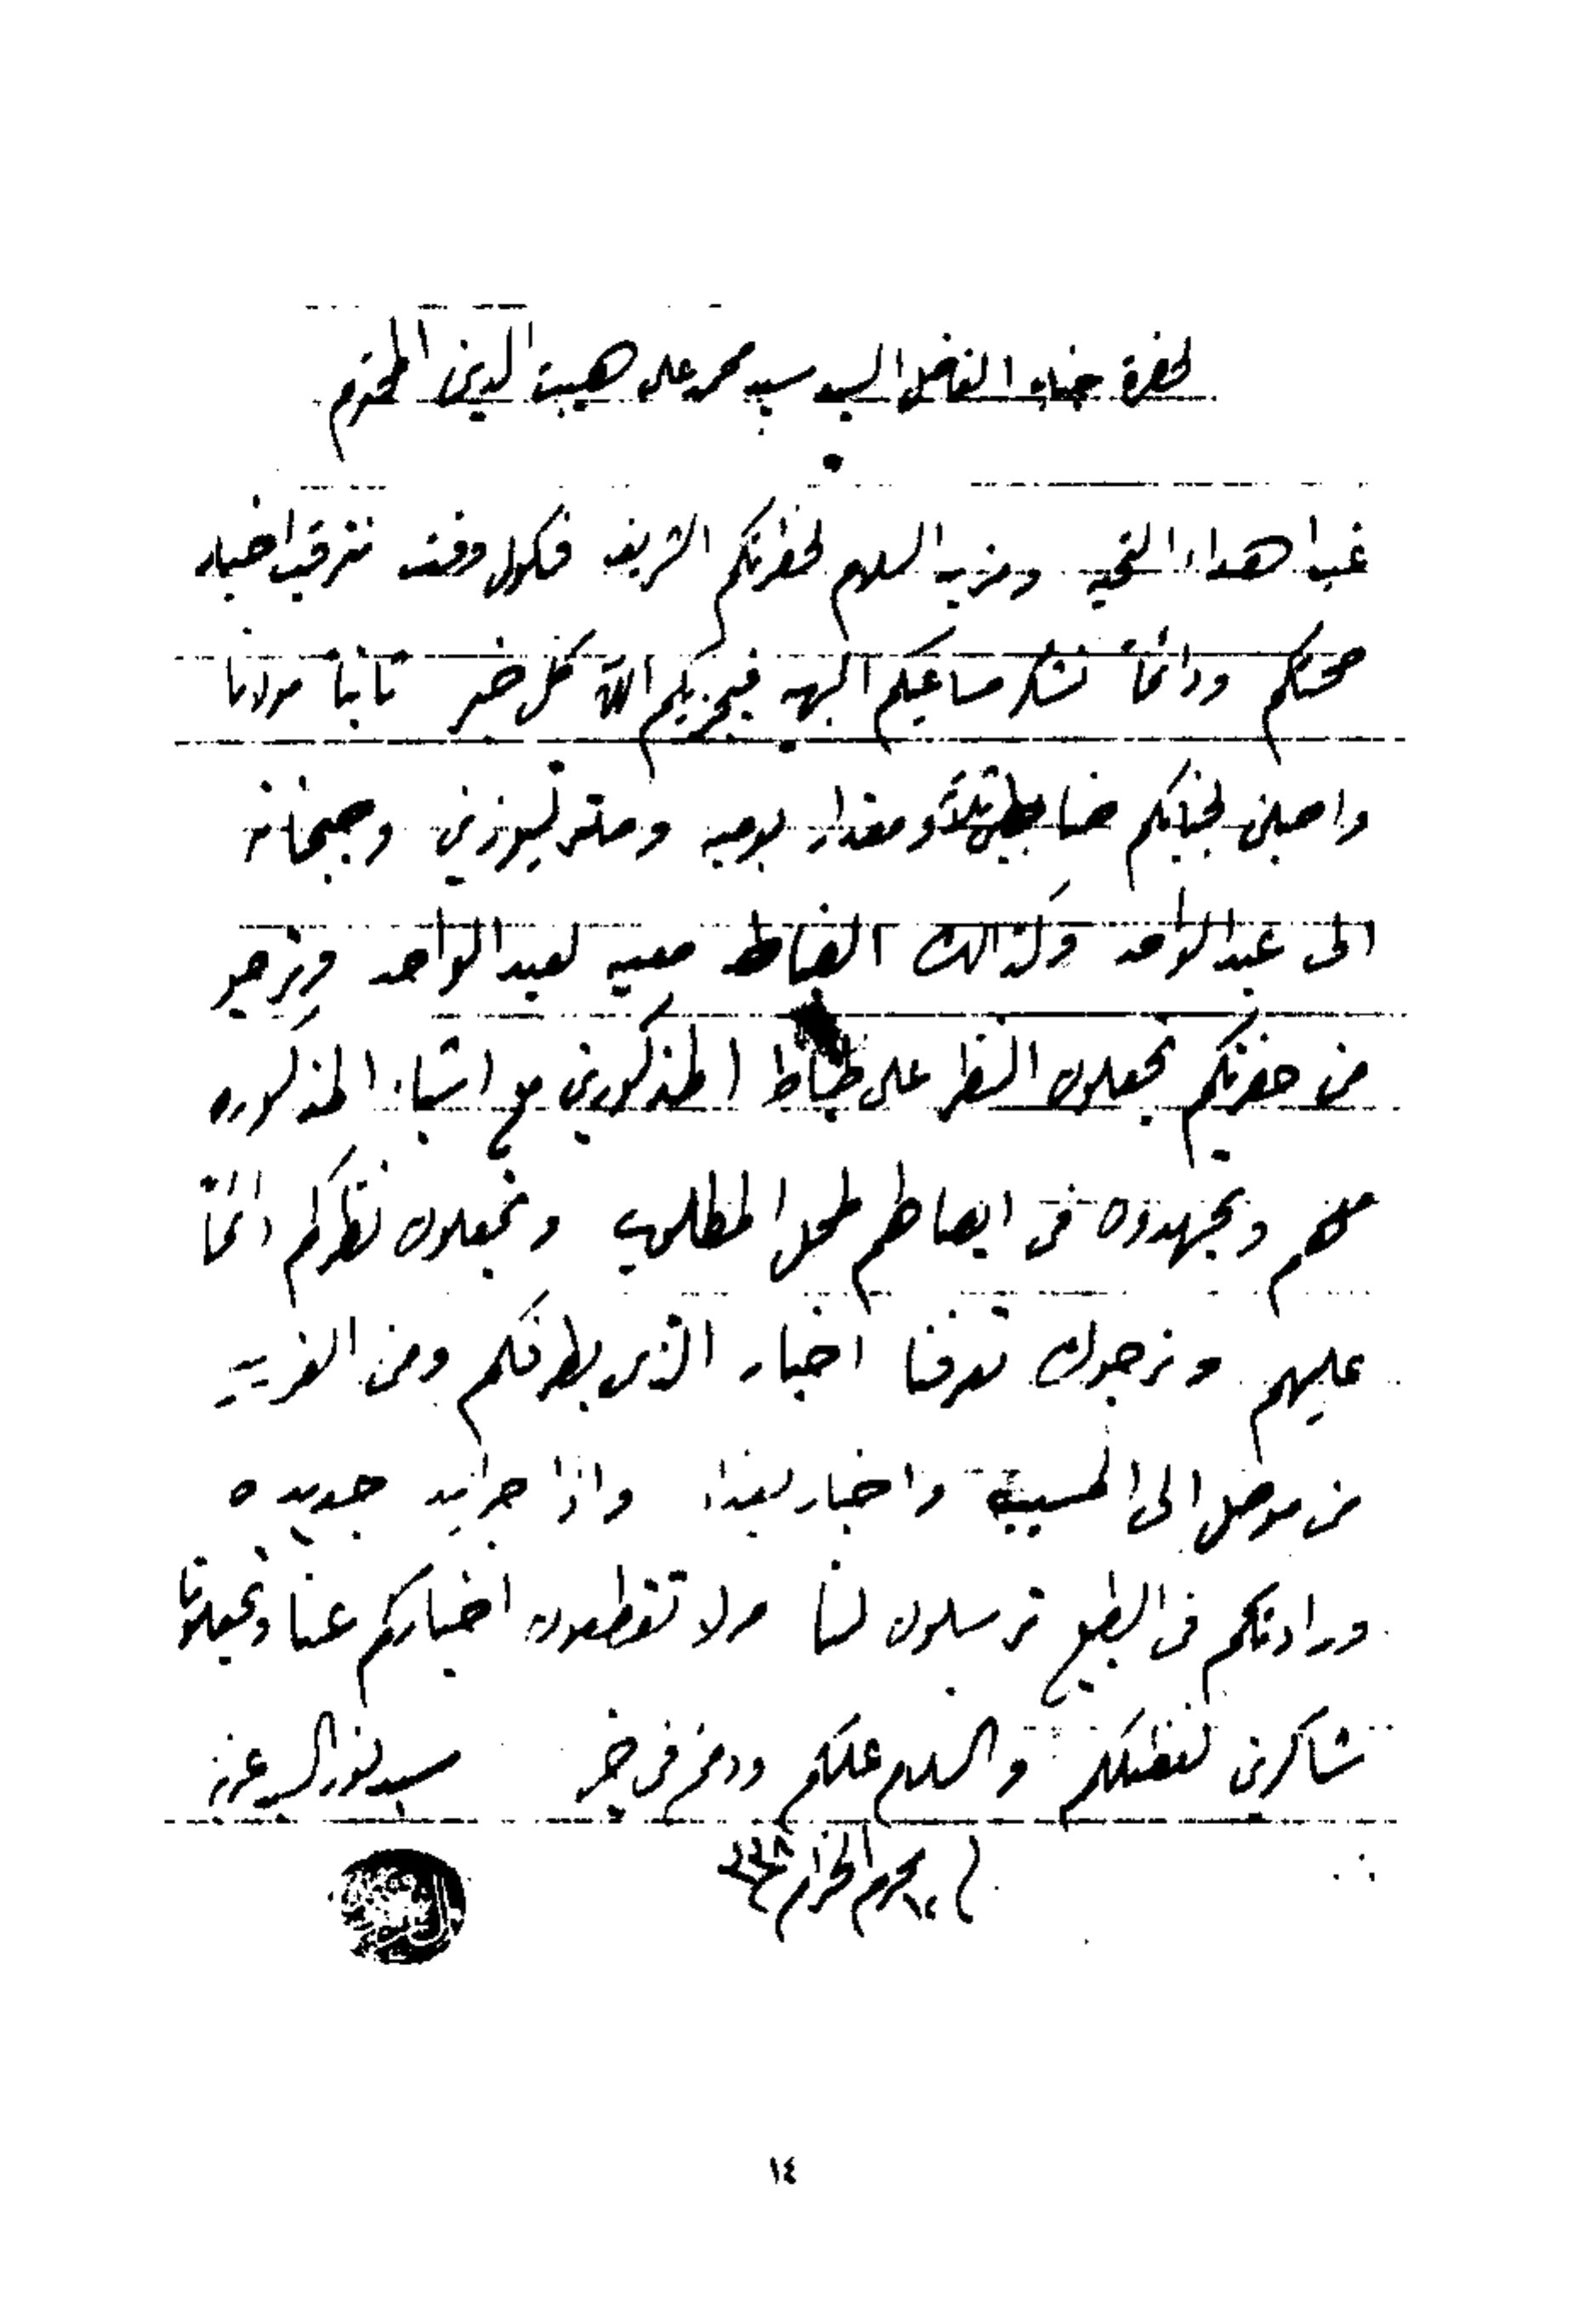 لحضرة جناب الفاضل السيد سيد محمد على هبة الدين المحترم
غب اهداء التحيه ومزيد السلام لحضراتكم الشريفه فكل وقت نترقب اخبار
صحتكم ودائماً نشكر مساعيكم البهيه فيجزيكم الله كل خير ثانيا مولانا
واصلين لجنابكم ومقدار يوميه ومتوليوزين وجبخانه
الى عبد الواحد وكذالك الضباط معيه لعبد الواحد ونرجو
من حضرتكم تجعلون النظر على ضباط المذكورين مع اشياء المذكوره
معهم وتجهدون فى ايصاطهم لمحل المطلوب وتجعلون نظركم دائماً
عليهم ونرجوك تعرفنا اخبار الذى بطرفكم ومن الغربيه
من موصل الى المسيب واخبار بغداد واذا جرايد جديده
ورادتكم فى الطبع ترسلون لنا ولا تقطعون اخباركم عنا وتجعلونا
شاكرين لفضلكم والسلام عليكم ودمتم فى خير سيد نور السيد عزيز
محرم الحرام
١٤